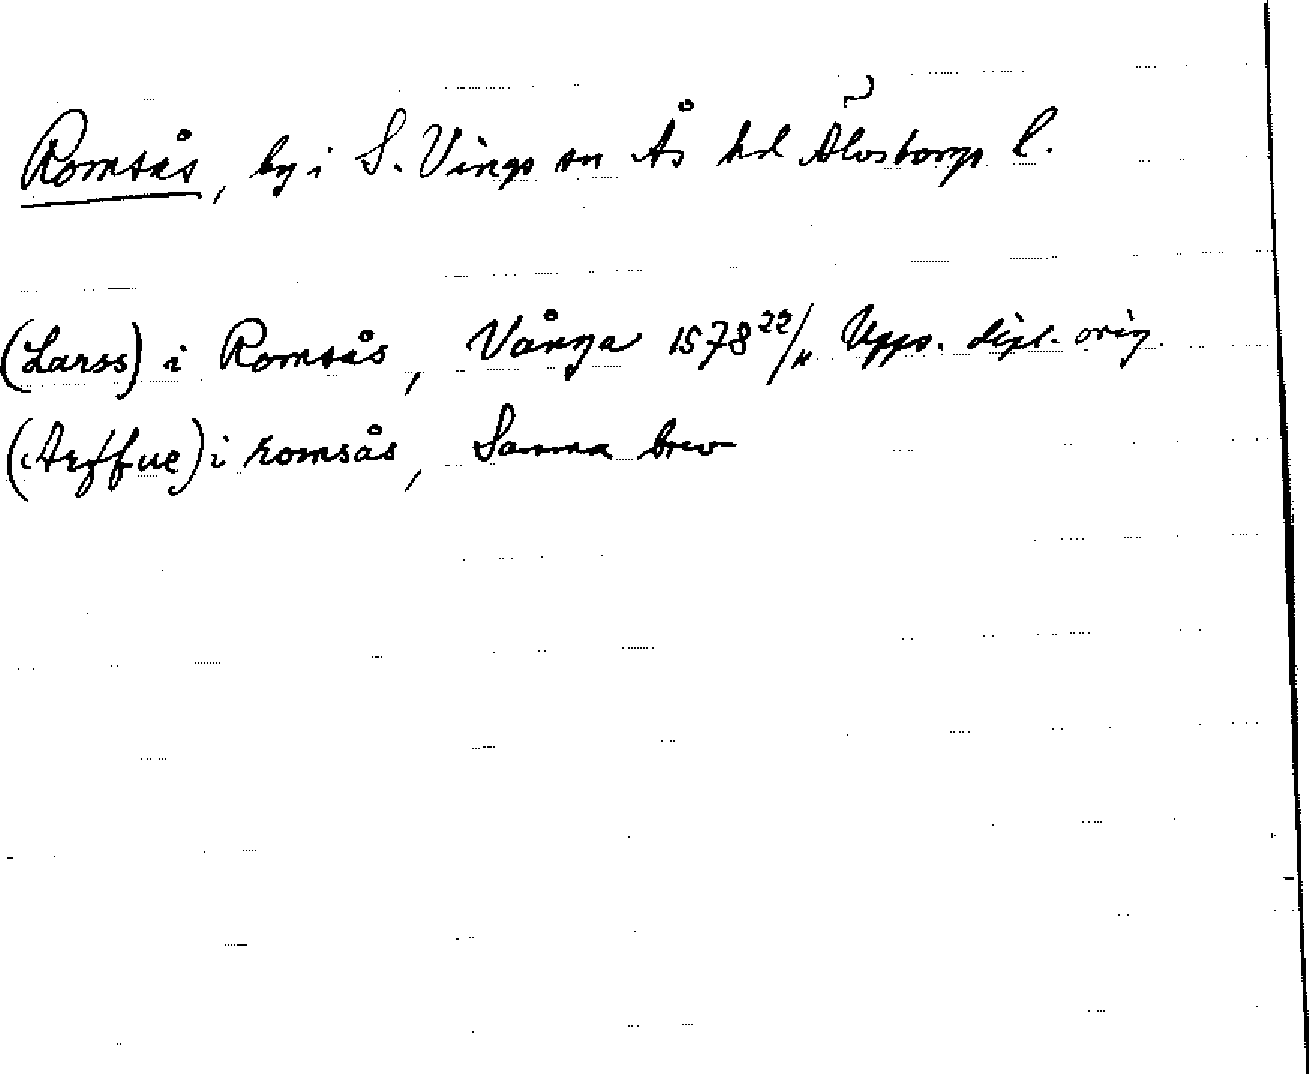 Romsås, by i S. Vings sn Ås hd Älvsborgs l.
(Larss) i Romsås, Vånga 1578 22/11 Upps. dipl. orig.
(Aeffue) i romsås, Samma brev